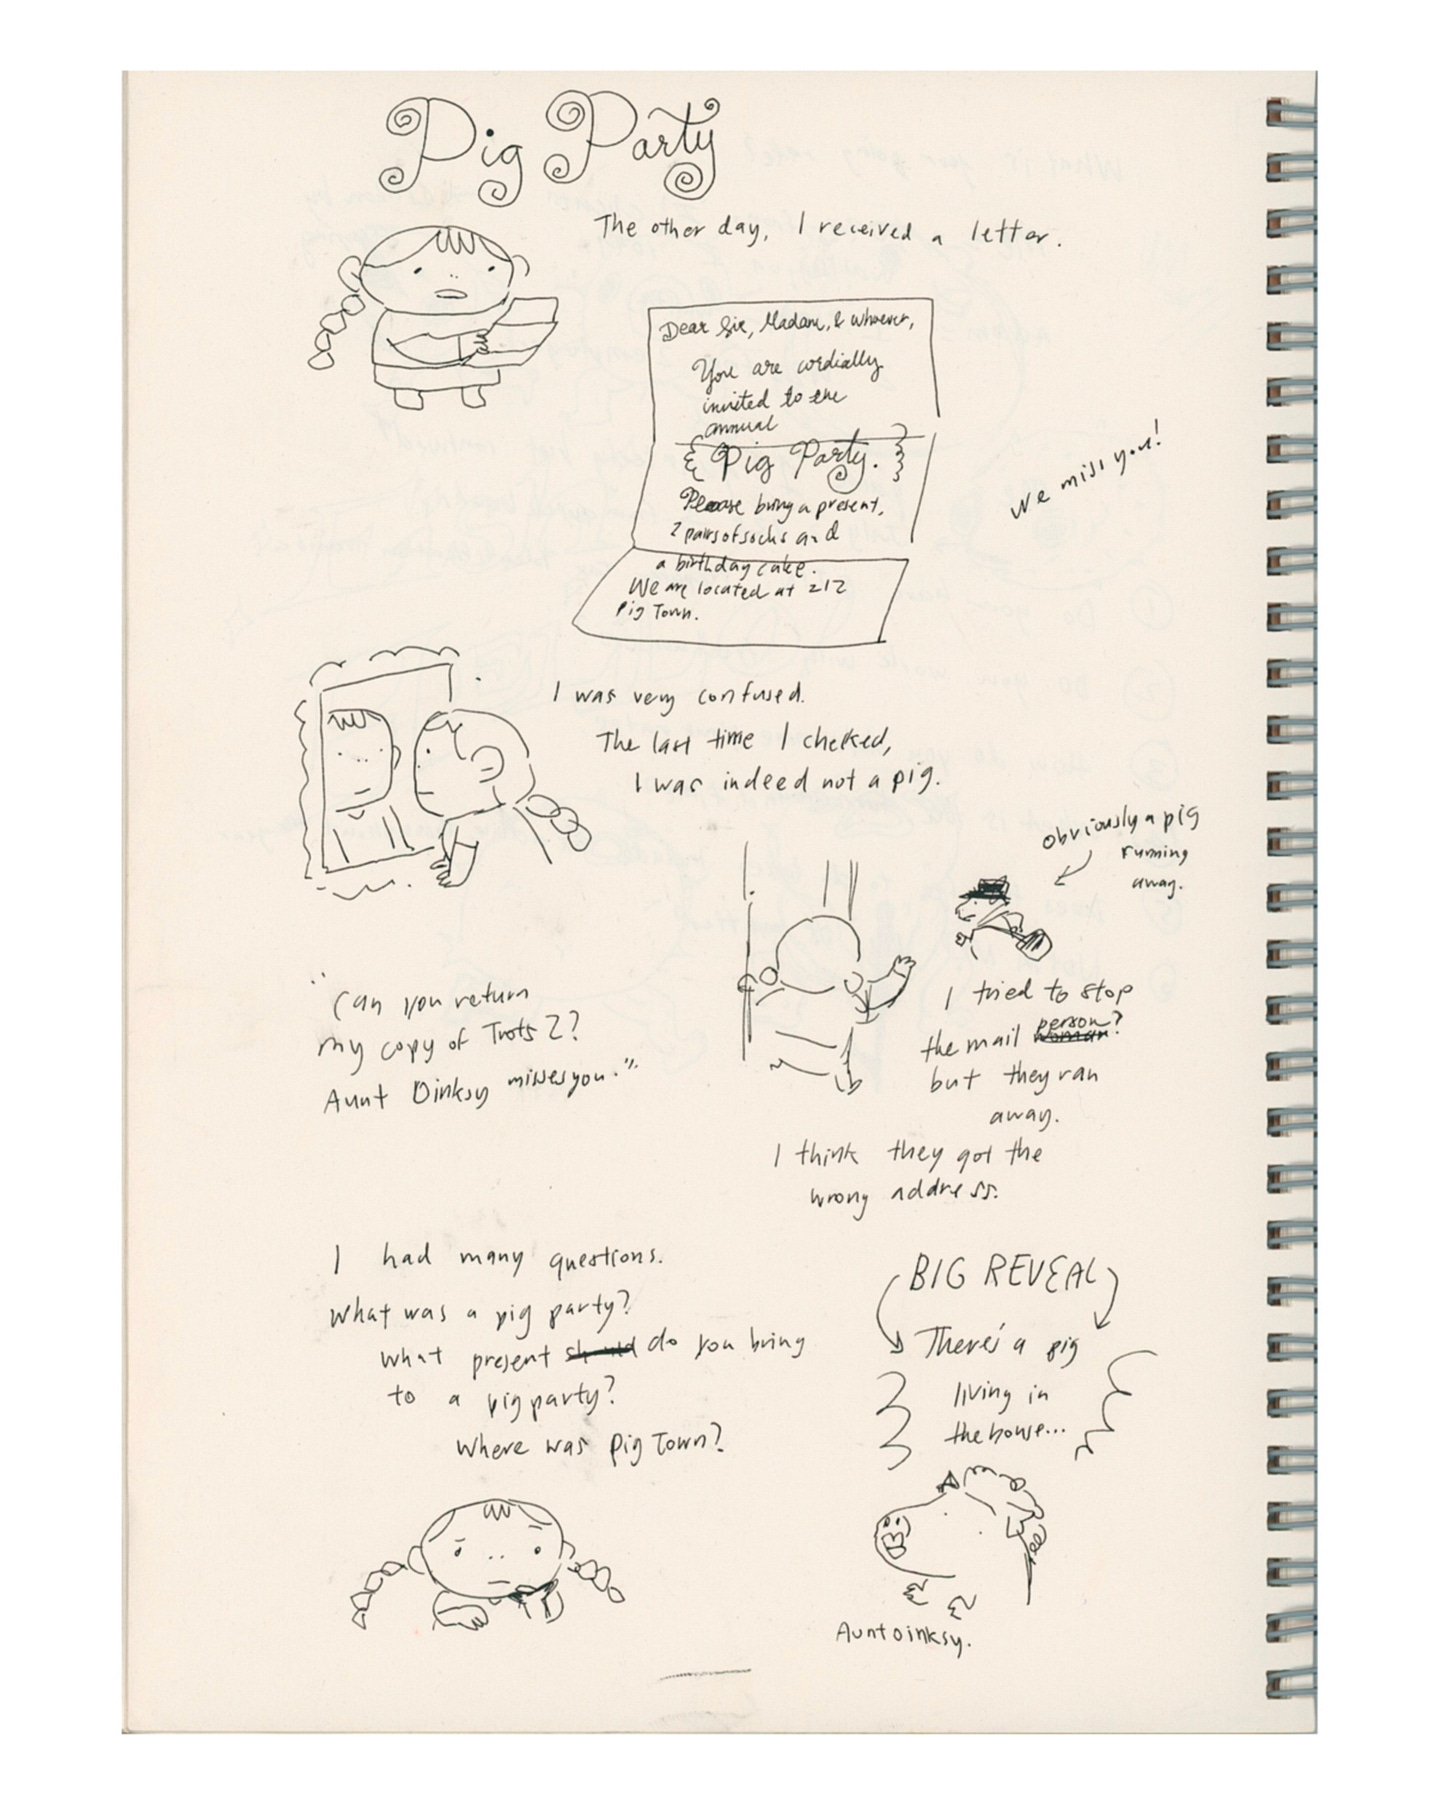 Pig Party
The other day, I received a letter.
Dear Sir, Madam, & whoever,
You are cordially
invited to the
annual
Pig Party.
Please bring a present,
2 pairs of socks and
a birthday cake.
We are located at 212
Pig Town.
We miss you!
I was very confused.
The last time I checked,
I was indeed not a pig.
obviously a pig
running
away.
"Can you return
my copy of Trots 2?
Aunt Oinksy misses you."
I tried to stop
the mail person?
but they ran
away.
I think they got the
wrong address.
I had many questions.
What was a pig party?
What present do you bring
to a pig party?
Where was Pig Town?
BIG REVEAL
There's a pig
living in
the house...
Aunt oinksy.